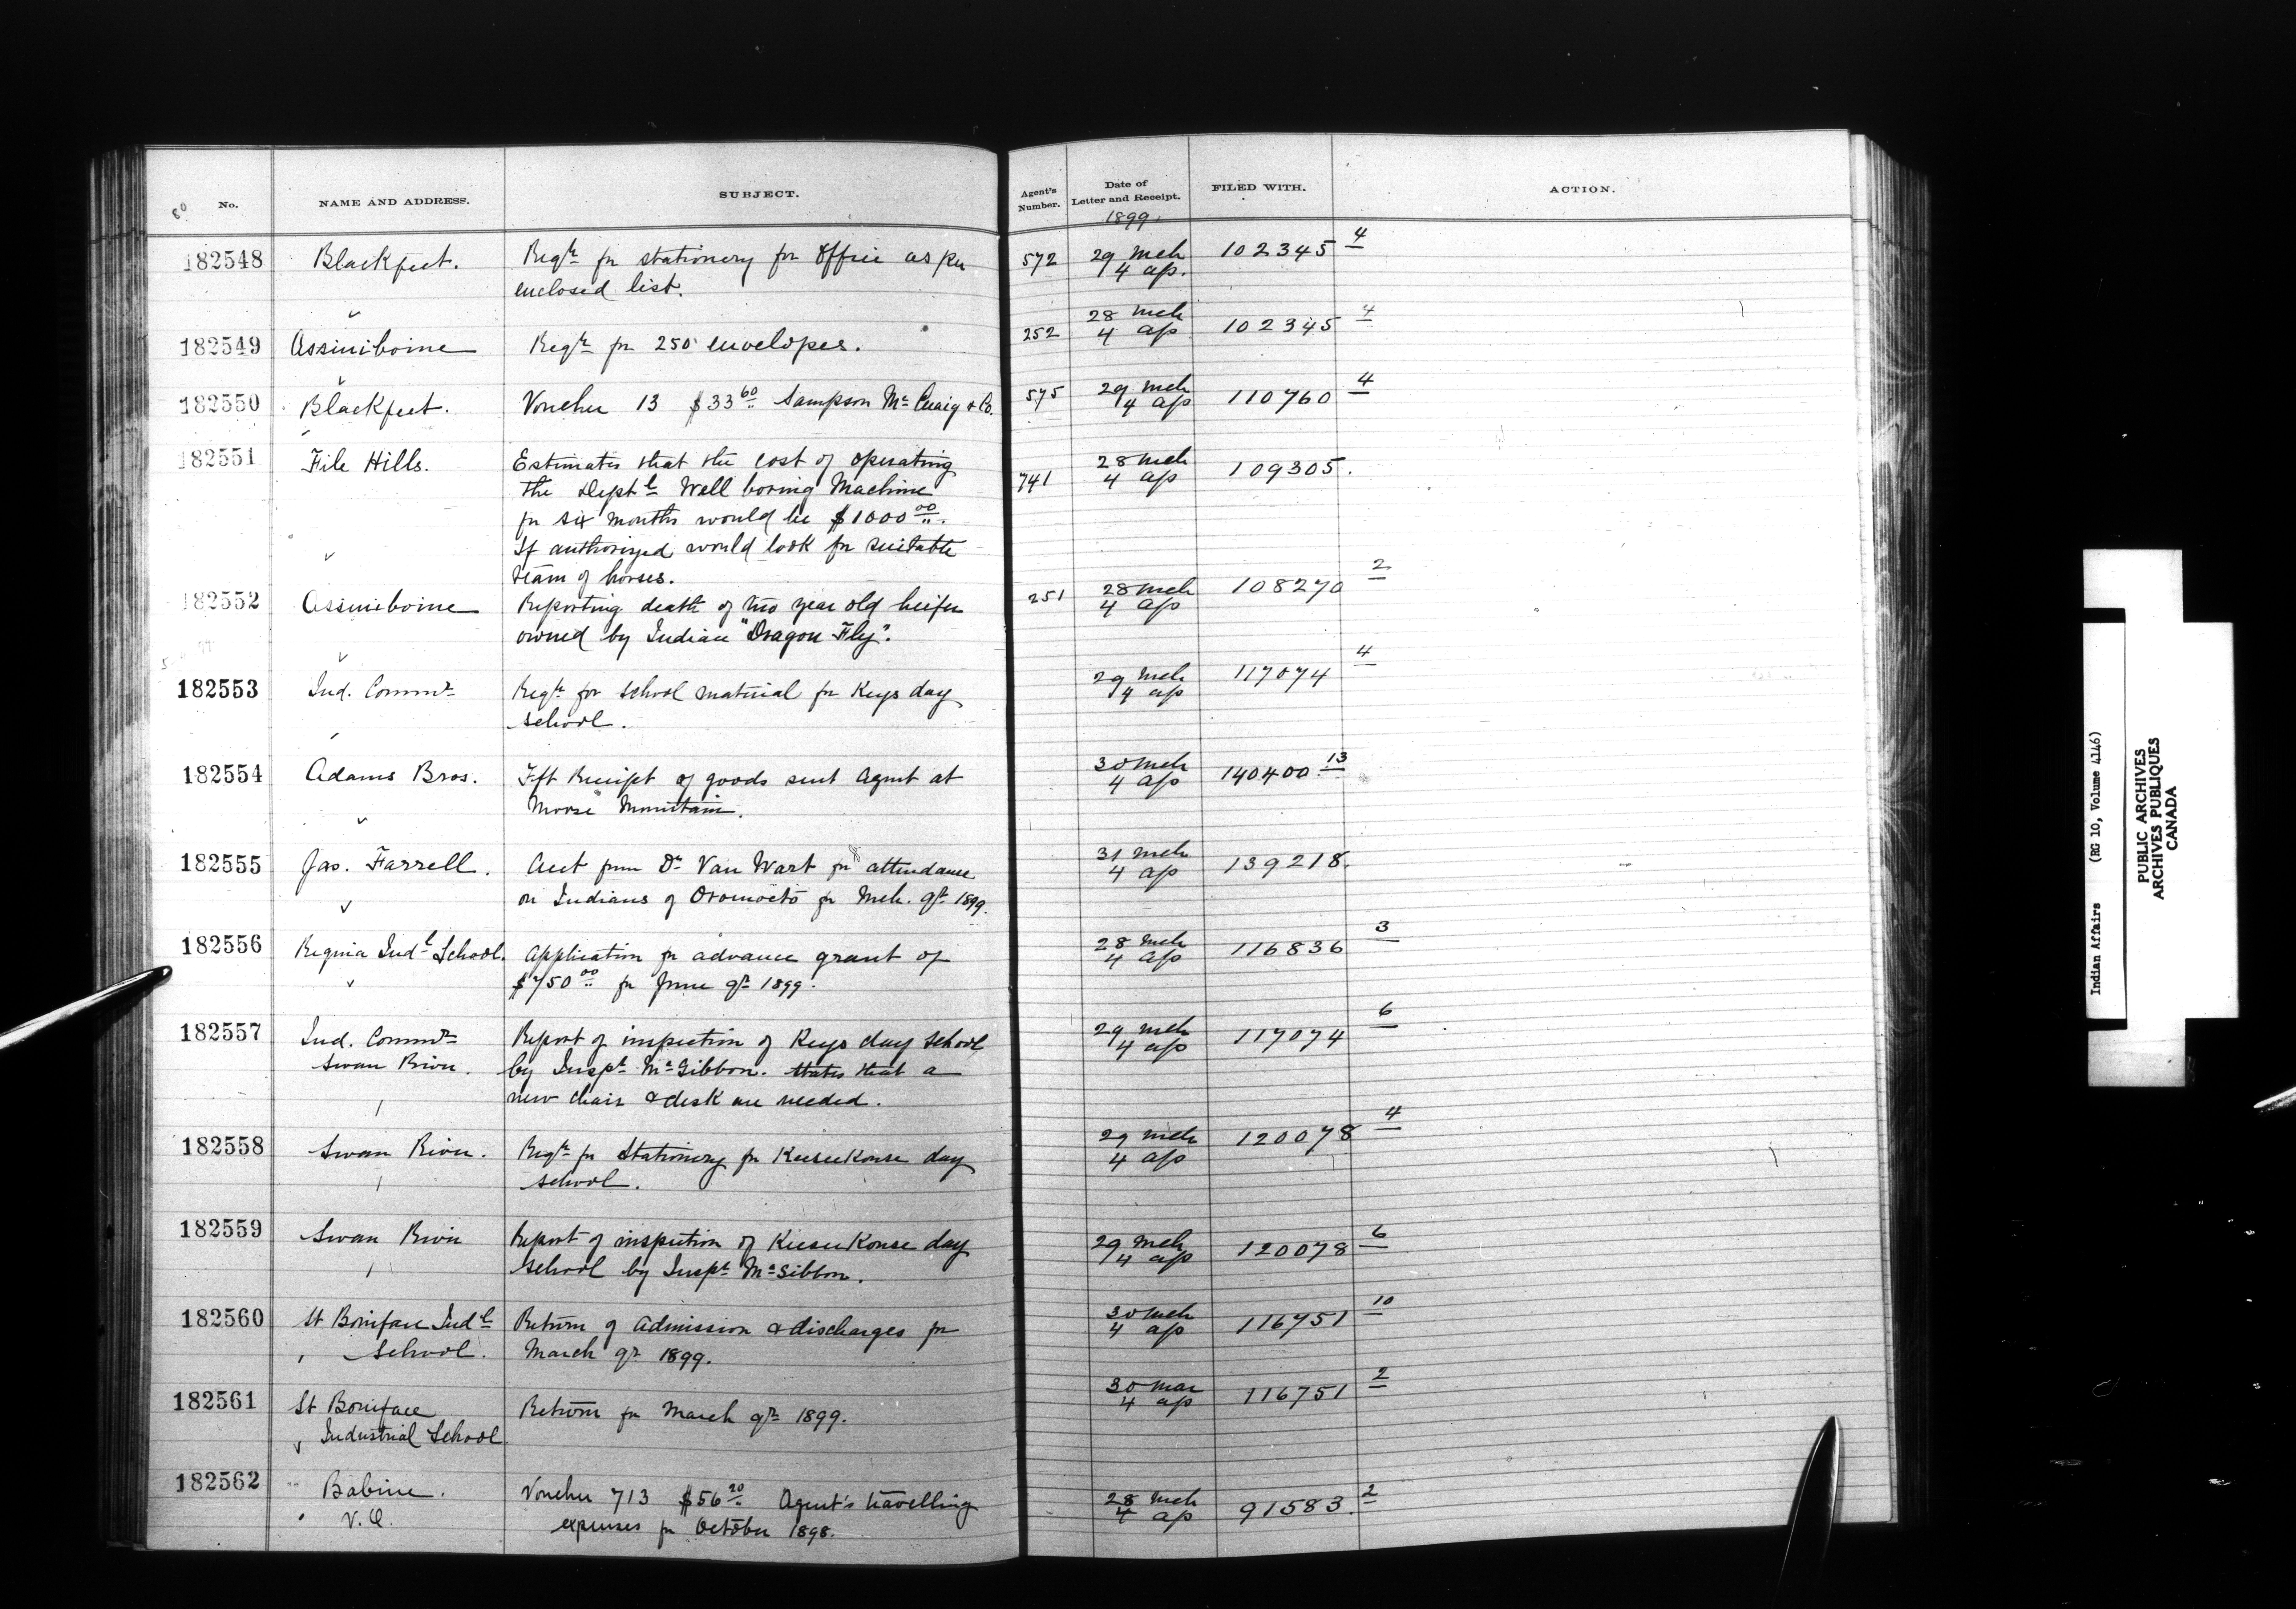 No.
NAME AND ADDRESS.
SUBJECT.
Agent's Number.
Date of Letter and Receipt.
FILED WITH.
ACTION.
60
1899
182548 Blackfeet. Reqn for stationery for office as per 572 29 Mch 102345 4
enclosed list. 4 ap.
182549 Assiniboine Reqn for 250 envelopes. 252 28 Mch 102345 4
4 ap
182550 Blackfeet. Voucher 13 $33 60 Sampson McCuaig & Co. 575 29 Mch 110760 4
4 ap
182551 File Hills. Estimates that the cost of operating 741 28 Mch 109305.
the Deptl Well boring Machine 4 ap
for six months would be $1000 00.
If authorized would look for suitable
team of horses.
182552 Assiniboine Reporting death of two year old heifer 251 28 Mch 108270 2
owned by Indian "Dragon Fly". 4 ap
182553 Ind. Commr Reqn for school material for Keys day 29 Mch 117074 4
school. 4 ap
182554 Adams Bros. Fft Receipt of goods sent Agent at 30 Mch 140400 13
Moose Mountain. 4 ap
182555 Jas. Farrell. Acct from Dr Van Wart for attendance 31 Mch 139218.
on Indians of Oromocto for Mch. qr 1899. 4 ap
182556 Regina Indl School. Application for advance grant of 28 Mch 116836 3
$750 00 for June qr 1899. 4 ap
182557 Ind. Commr Report of inspection of Keys day school 29 Mch 117074 6
Swan River. by Inspr McGibbon. States that a 4 ap
new chair & desk are needed.
182558 Swan River. Reqn for Stationery for Keeseekouse day 29 Mch 120078 4
school. 4 ap
182559 Swan River Report of inspection of Keeseekouse day 29 Mch 120078 6
school by Inspr McGibbon. 4 ap
182560 St Boniface Indl Return of admission & discharges for 30 Mch 116751 10
School. March qr 1899. 4 ap
182561 St Boniface Return for March qr 1899. 30 Mar 116751 2
Industrial School. 4 ap
182562 Babine. Voucher 713 $56 20 Agent's travelling 28 Mch 91583. 2
expenses for October 1898. 4 ap
Indian Affairs (RG 10, Volume 4146)
PUBLIC ARCHIVES
ARCHIVES PUBLIQUES
CANADA